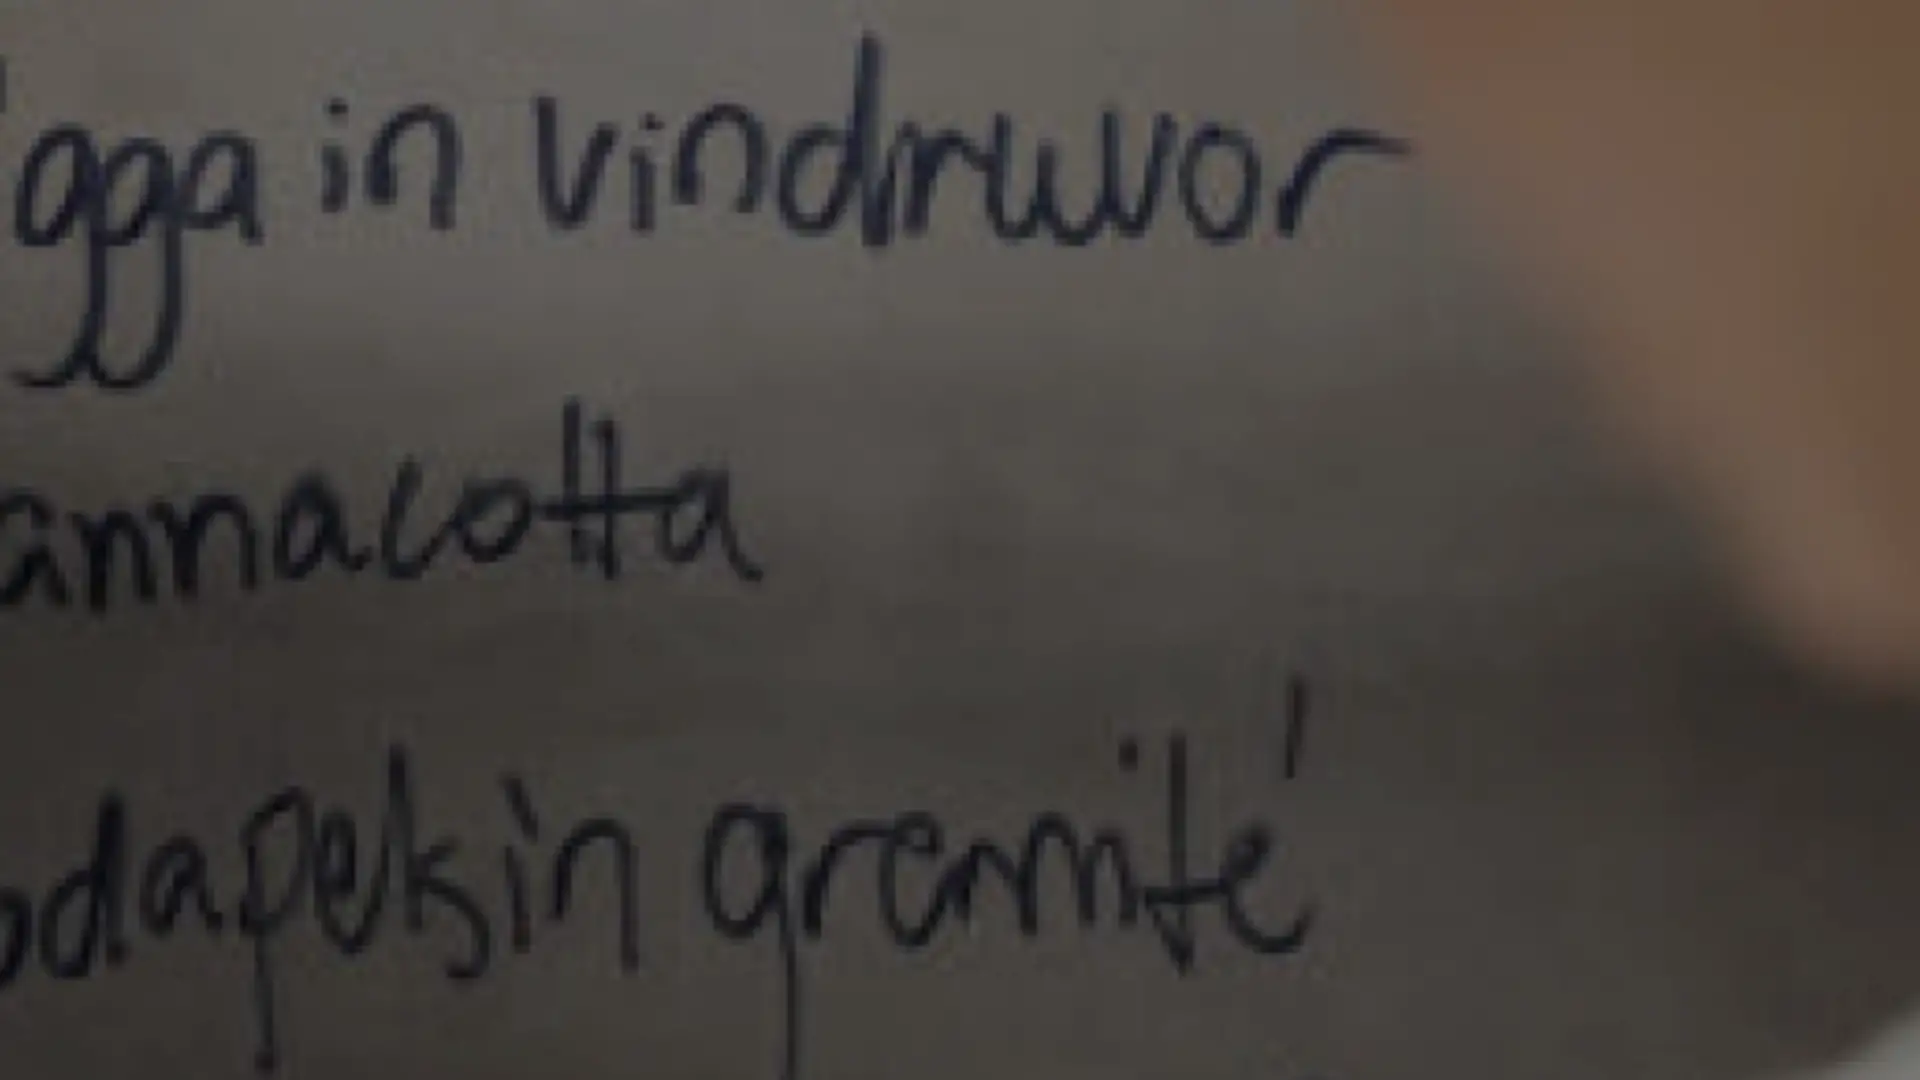 ägga in vindruvor
annacotta
odapelsin gremité